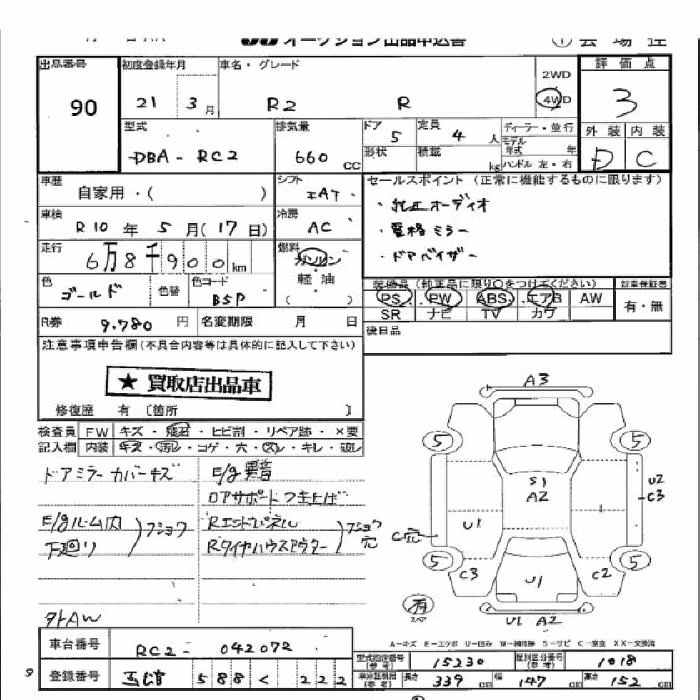 オークション出品申込書
① 会場控
出品番号 初度登録年月 車名・グレード 評価点
2WD
90 21 3月 R2 R 4WD 3
型式 排気量 ドア 5 定員 4 人 ディーラー・並行 外装 内装
DBA-RC2 660 cc 形状 積載 kg モデル年式 年 D C
ハンドル 左・右
車歴 自家用・( ) シフト IAT セールスポイント(正常に機能するものに限ります)
車検 R10 年 5 月(17日) 冷房 AC ・純正オーディオ
・電格ミラー
走行 6万8千900km 燃料 ガソリン ・ドアバイザー
軽油
色 ゴールド 色替 色コード BSP ( 装備品(純正品に限り○をつけてください) 記録保証書
PS PW ABS エアB AW 有・無
SR ナビ TV カワ
R券 9,780 円 名変期限 月 日 後日品
注意事項申告欄(不具合内容等は具体的に記入して下さい)
★ 買取店出品車
修復歴 有 〔箇所 〕
A3
検査員 FW キズ・飛石・ヒビ割・リペア跡・×要
記入欄 内装 キズ・汚レ・コゲ・穴・スレ・キレ・破レ
5 5
ドアミラーカバーキズ E/g異音
S1
A2
U2
C3
ロアサポートつき上げ
E/gルーム内 フショク Rエンドパネル フショク穴
U1 C穴
下廻り Rタイヤハウスアウター
5 5
C3 U1 C2
有
スペア
U1 A2
外AW
A-キズ E-エクボ U-凹み W-補修跡 S-サビ C-腐食 XX-交換済
車台番号 RC2-042072
型式指定番号(参考) 15230 類別区分番号(参考) 1018
登録番号 588 く 222
長さ 339 cm 幅 147 cm 高さ 152 cm
9